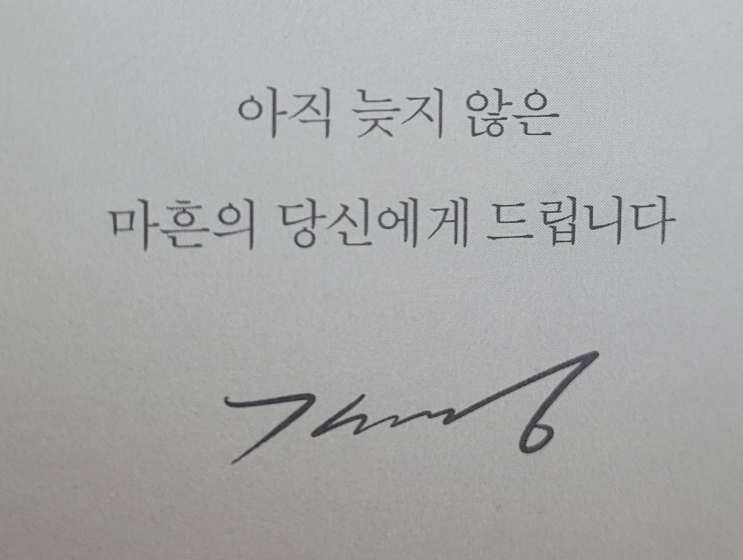 아직 늦지 않은
마흔의 당신에게 드립니다